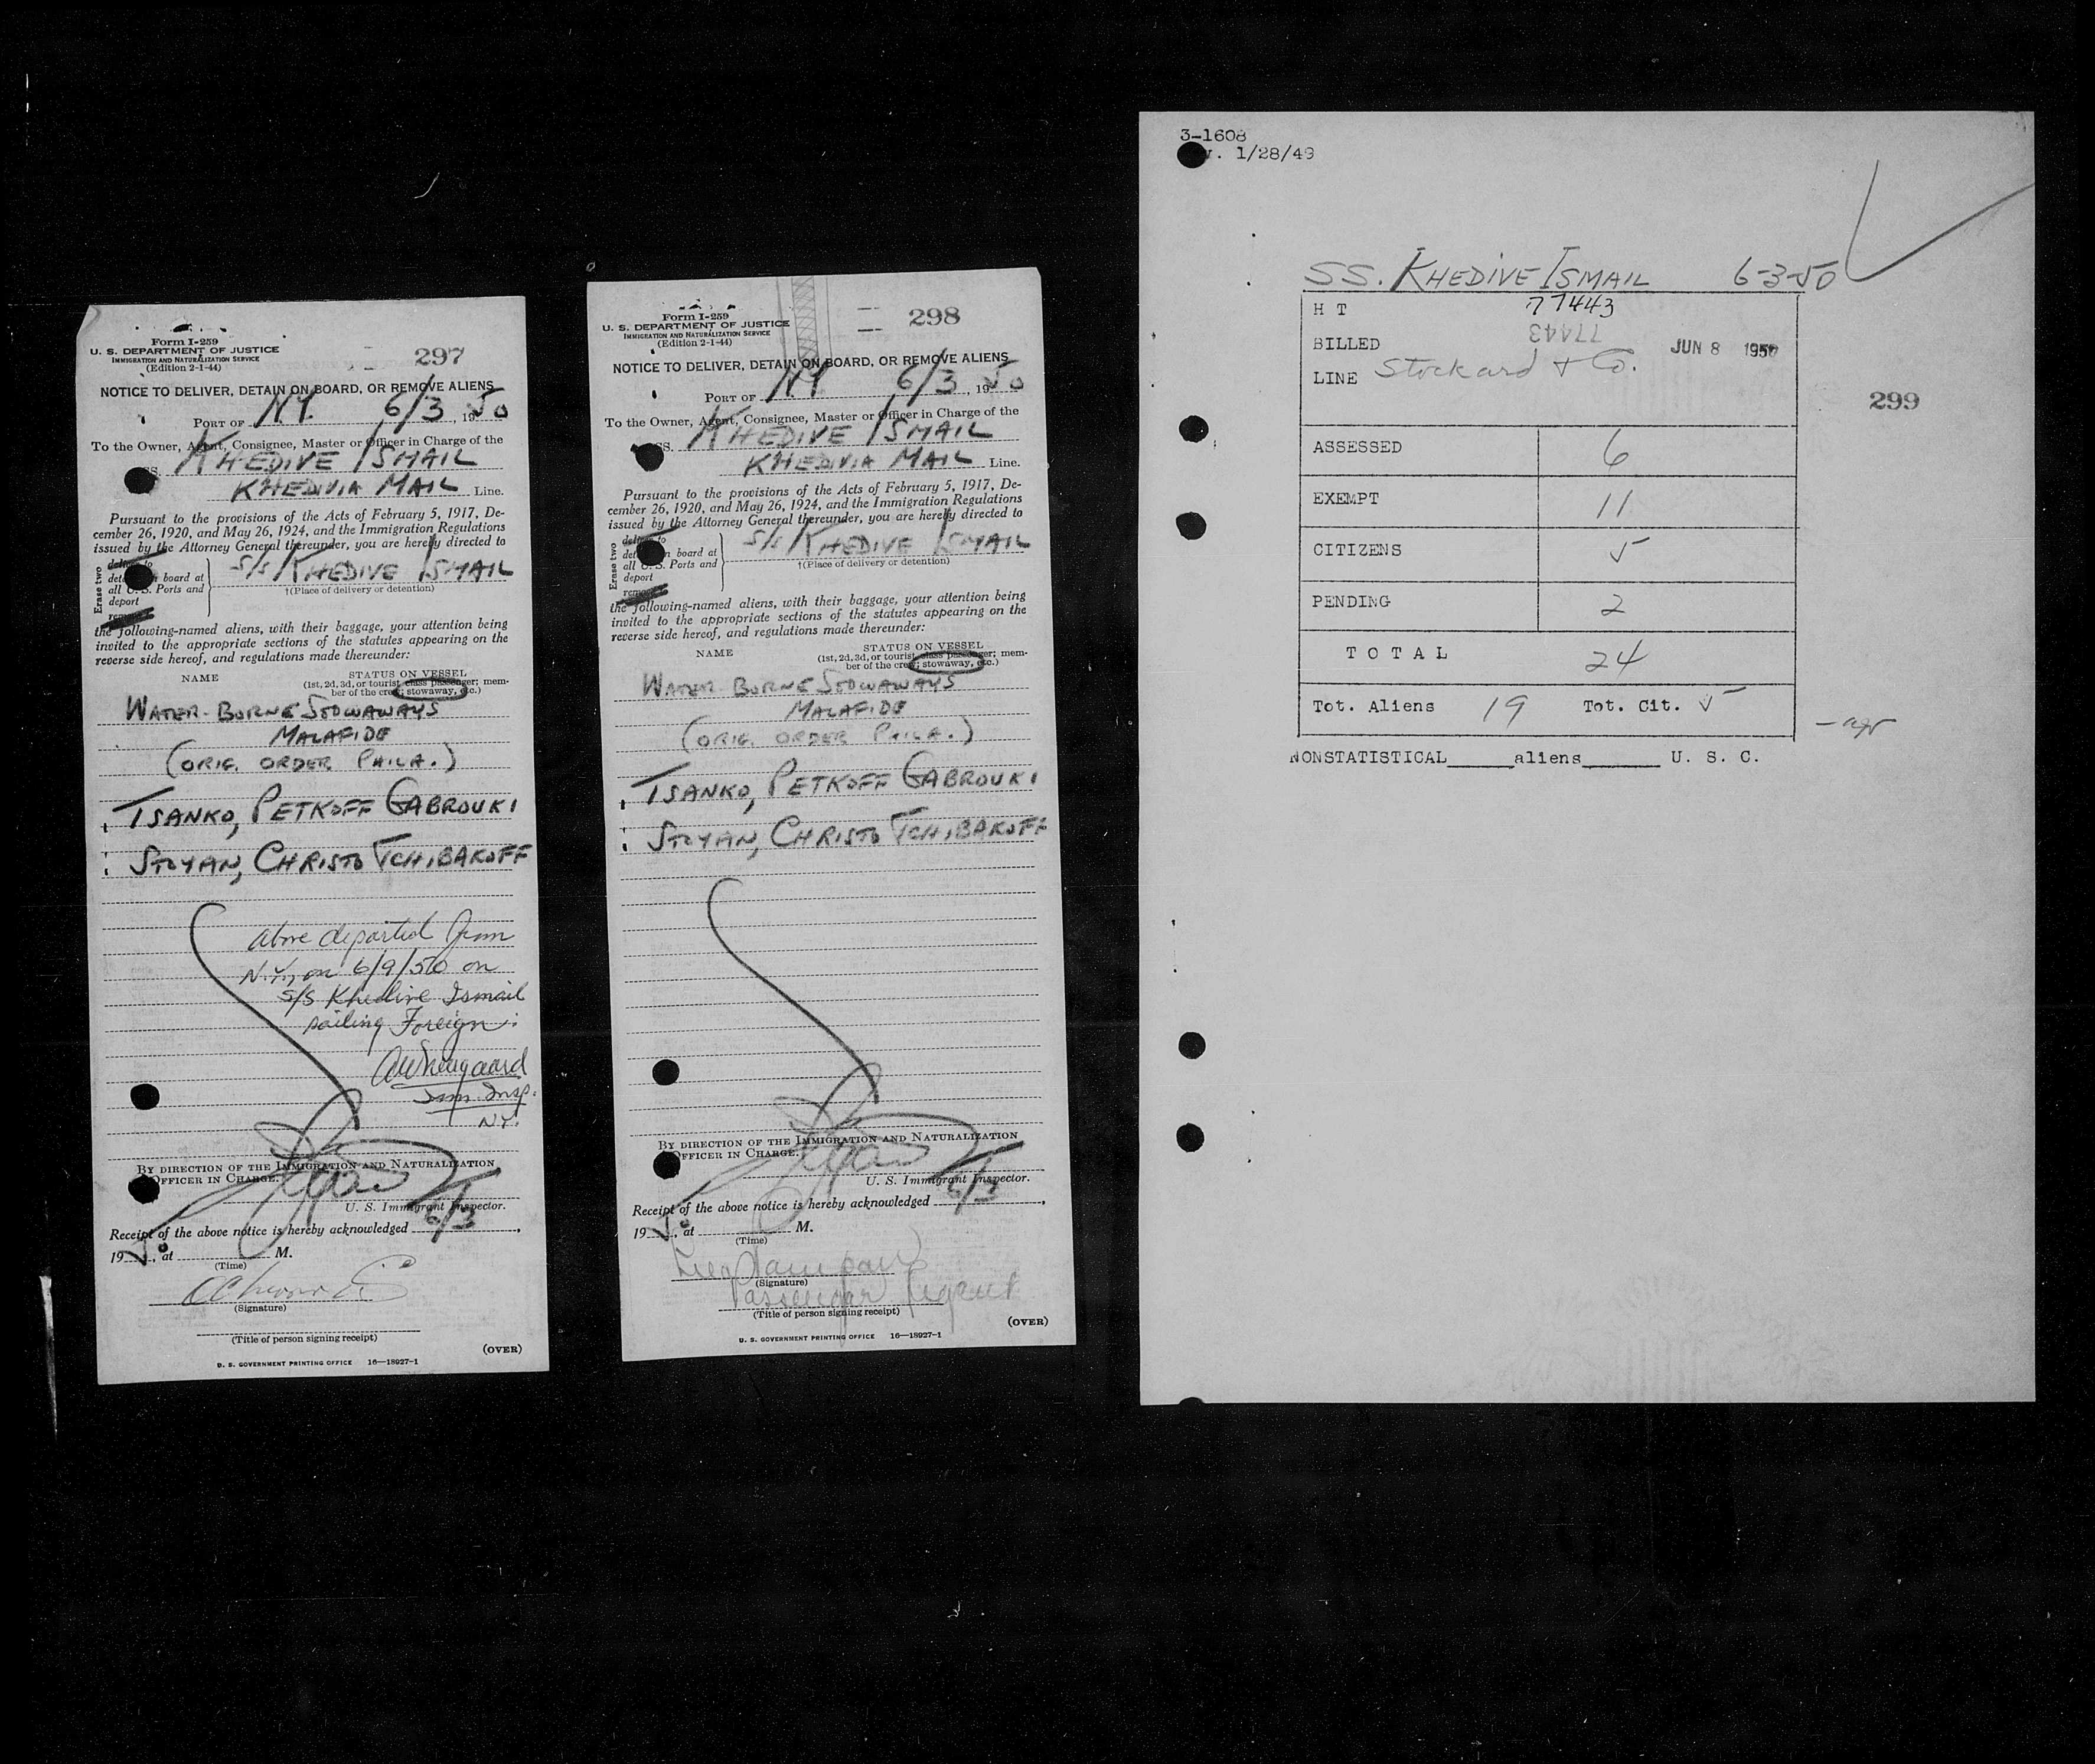 Form I-259
U. S. DEPARTMENT OF JUSTICE
IMMIGRATION AND NATURALIZATION SERVICE
(Edition 2-1-44)
297
NOTICE TO DELIVER, DETAIN ON BOARD, OR REMOVE ALIENS
PORT OF N.Y. 6/3, 1950
To the Owner, Agent, Consignee, Master or Officer in Charge of the
SS. KHEDIVE ISMAIL
KHEDIVIA MAIL Line.
Pursuant to the provisions of the Acts of February 5, 1917, De-
cember 26, 1920, and May 26, 1924, and the Immigration Regulations
issued by the Attorney General thereunder, you are hereby directed to
Erase two
deliver to
detain on board at
all U. S. Ports and
deport
remove
S/S KHEDIVE ISMAIL
†(Place of delivery or detention)
the following-named aliens, with their baggage, your attention being
invited to the appropriate sections of the statutes appearing on the
reverse side hereof, and regulations made thereunder:
NAME
STATUS ON VESSEL
(1st, 2d, 3d, or tourist class passenger; mem-
ber of the crew; stowaway, etc.)
WATER-BORNE STOWAWAYS
MALAFIDE
(ORIG. ORDER PHILA.)
TSANKO, PETKOFF GABROUKI
STOYAN, CHRISTO TCHIBAKOFF
above departed from
N.Y., on 6/9/50 on
S/S Khedive Ismail
sailing Foreign.
Imm. Insp.
N.Y.
BY DIRECTION OF THE IMMIGRATION AND NATURALIZATION
OFFICER IN CHARGE.
U. S. Immigrant Inspector.
Receipt of the above notice is hereby acknowledged 6/3,
1950, at M.
(Time)
(Signature)
(Title of person signing receipt)
(OVER)
U. S. GOVERNMENT PRINTING OFFICE 16—18927-1
Form I-259
U. S. DEPARTMENT OF JUSTICE
IMMIGRATION AND NATURALIZATION SERVICE
(Edition 2-1-44)
298
NOTICE TO DELIVER, DETAIN ON BOARD, OR REMOVE ALIENS
PORT OF N.Y. 6/3, 1950
To the Owner, Agent, Consignee, Master or Officer in Charge of the
SS. KHEDIVE ISMAIL
KHEDIVIA MAIL Line.
Pursuant to the provisions of the Acts of February 5, 1917, De-
cember 26, 1920, and May 26, 1924, and the Immigration Regulations
issued by the Attorney General thereunder, you are hereby directed to
Erase two
deliver to
detain on board at
all U. S. Ports and
deport
remove
S/S KHEDIVE ISMAIL
†(Place of delivery or detention)
the following-named aliens, with their baggage, your attention being
invited to the appropriate sections of the statutes appearing on the
reverse side hereof, and regulations made thereunder:
NAME
STATUS ON VESSEL
(1st, 2d, 3d, or tourist class passenger; mem-
ber of the crew; stowaway, etc.)
WATER-BORNE STOWAWAYS
MALAFIDE
(ORIG. ORDER PHILA.)
TSANKO, PETKOFF GABROUKI
STOYAN, CHRISTO TCHIBAKOFF
BY DIRECTION OF THE IMMIGRATION AND NATURALIZATION
OFFICER IN CHARGE.
U. S. Immigrant Inspector.
Receipt of the above notice is hereby acknowledged 6/3,
1950, at M.
(Time)
(Signature)
Passenger Agent
(Title of person signing receipt)
(OVER)
U. S. GOVERNMENT PRINTING OFFICE 16—18927-1
3-1608
v. 1/28/49
SS. KHEDIVE ISMAIL 6-3-50
H T 77443
77443
BILLED JUN 8 1950
LINE Stockard & Co.
299
ASSESSED 6
EXEMPT 11
CITIZENS 5
PENDING 2
TOTAL 24
Tot. Aliens 19 Tot. Cit. 5
NONSTATISTICAL aliens U. S. C.